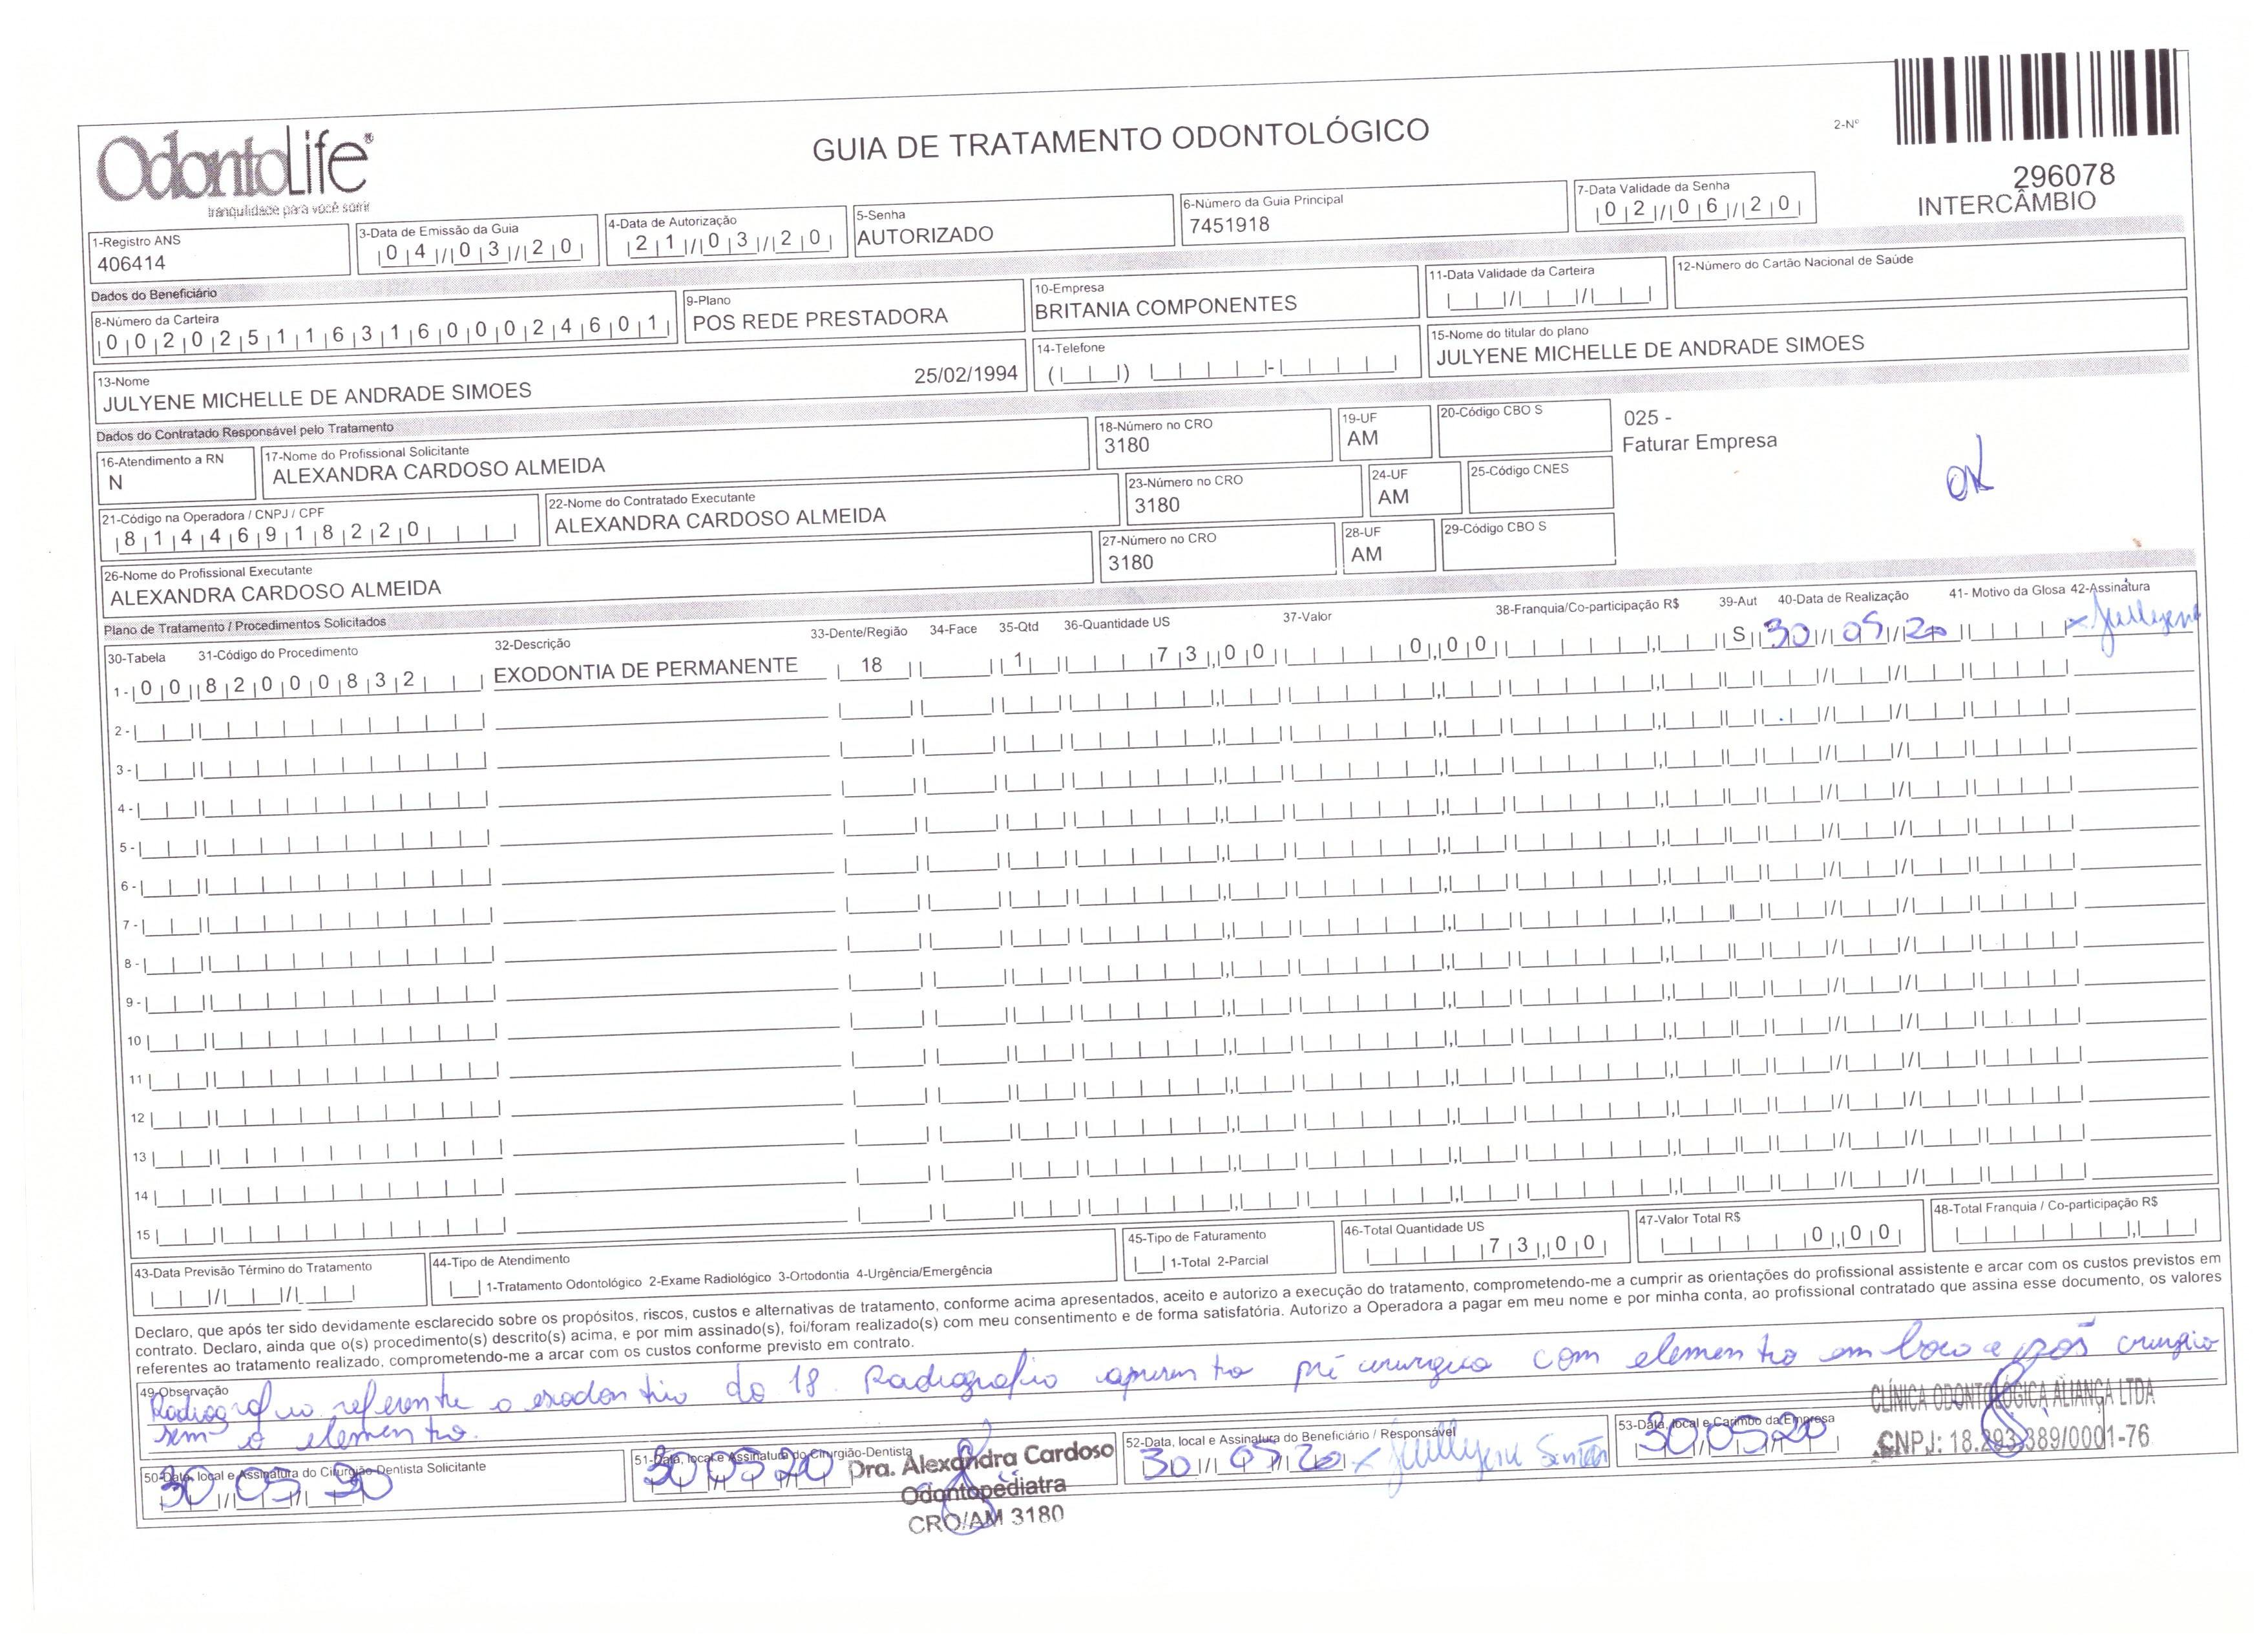 OdontoLife®
tranquilidade para você sorrir
GUIA DE TRATAMENTO ODONTOLÓGICO
2-Nº
296078
INTERCÂMBIO
1-Registro ANS
406414
3-Data de Emissão da Guia
04/03/20
4-Data de Autorização
21/03/20
5-Senha
AUTORIZADO
6-Número da Guia Principal
7451918
7-Data Validade da Senha
02/06/20
Dados do Beneficiário
8-Número da Carteira
00202511631600024601
9-Plano
POS REDE PRESTADORA
10-Empresa
BRITANIA COMPONENTES
11-Data Validade da Carteira
12-Número do Cartão Nacional de Saúde
13-Nome
JULYENE MICHELLE DE ANDRADE SIMOES 25/02/1994
14-Telefone
15-Nome do titular do plano
JULYENE MICHELLE DE ANDRADE SIMOES
Dados do Contratado Responsável pelo Tratamento
16-Atendimento a RN
N
17-Nome do Profissional Solicitante
ALEXANDRA CARDOSO ALMEIDA
18-Número no CRO
3180
19-UF
AM
20-Código CBO S
025 -
Faturar Empresa
OK
21-Código na Operadora / CNPJ / CPF
81446918220
22-Nome do Contratado Executante
ALEXANDRA CARDOSO ALMEIDA
23-Número no CRO
3180
24-UF
AM
25-Código CNES
26-Nome do Profissional Executante
ALEXANDRA CARDOSO ALMEIDA
27-Número no CRO
3180
28-UF
AM
29-Código CBO S
Plano de Tratamento / Procedimentos Solicitados
30-Tabela 31-Código do Procedimento 32-Descrição 33-Dente/Região 34-Face 35-Qtd 36-Quantidade US 37-Valor 38-Franquia/Co-participação R$ 39-Aut 40-Data de Realização 41- Motivo da Glosa 42-Assinatura
1- 00 82000832 EXODONTIA DE PERMANENTE 18 1 73,00 0,00 S 30/05/20
2-
3-
4-
5-
6-
7-
8-
9-
10
11
12
13
14
15
43-Data Previsão Término do Tratamento
44-Tipo de Atendimento
1-Tratamento Odontológico 2-Exame Radiológico 3-Ortodontia 4-Urgência/Emergência
45-Tipo de Faturamento
1-Total 2-Parcial
46-Total Quantidade US
73,00
47-Valor Total R$
0,00
48-Total Franquia / Co-participação R$
Declaro, que após ter sido devidamente esclarecido sobre os propósitos, riscos, custos e alternativas de tratamento, conforme acima apresentados, aceito e autorizo a execução do tratamento, comprometendo-me a cumprir as orientações do profissional assistente e arcar com os custos previstos em
contrato. Declaro, ainda que o(s) procedimento(s) descrito(s) acima, e por mim assinado(s), foi/foram realizado(s) com meu consentimento e de forma satisfatória. Autorizo a Operadora a pagar em meu nome e por minha conta, ao profissional contratado que assina esse documento, os valores
referentes ao tratamento realizado, comprometendo-me a arcar com os custos conforme previsto em contrato.
49-Observação
Radiografia referente a exodontia do 18. Radiografia apresenta pré cirurgica com elemento em boca e pós cirurgia
sem o elemento.
50-Data, local e Assinatura do Cirurgião-Dentista Solicitante
30 05 20
51-Data, local e Assinatura do Cirurgião-Dentista
30 05 20
Dra. Alexandra Cardoso
Odontopediatra
CRO/AM 3180
52-Data, local e Assinatura do Beneficiário / Responsável
30/05/20
53-Data, local e Carimbo da Empresa
30 05 20
CLÍNICA ODONTOLÓGICA ALIANÇA LTDA
CNPJ: 18.293.389/0001-76